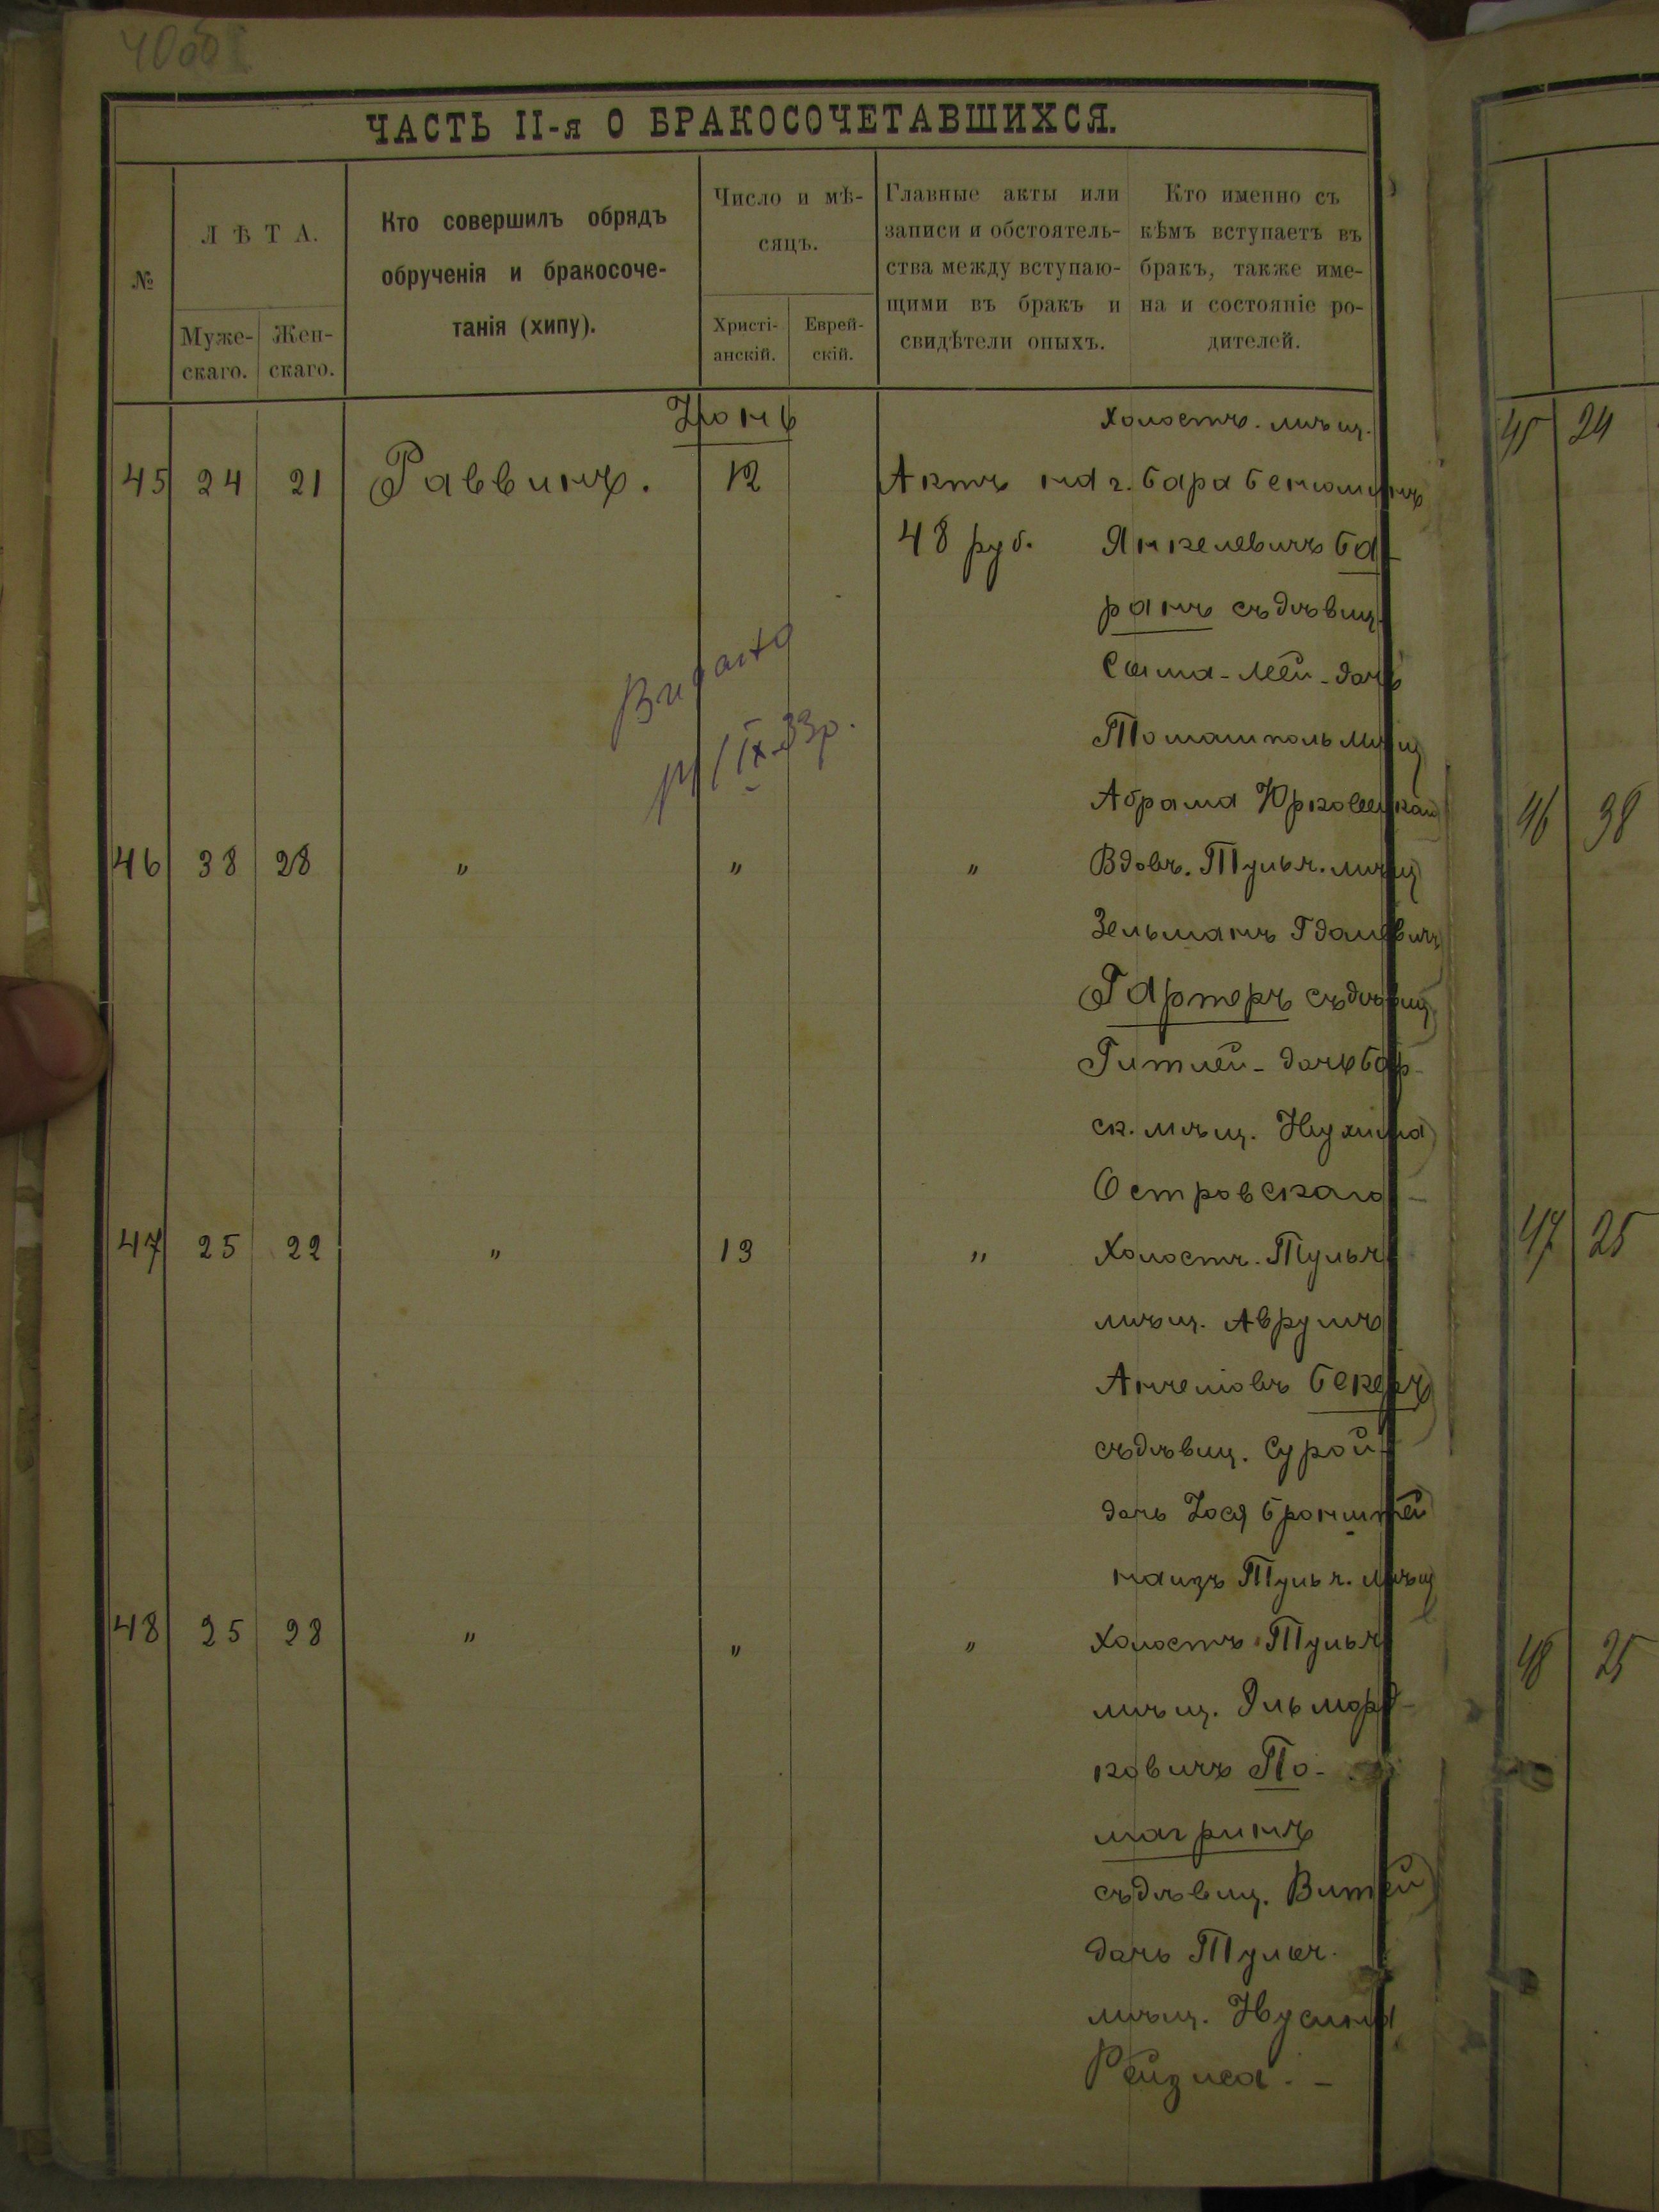 40об
ЧАСТЬ II-я О БРАКОСОЧЕТАВШИХСЯ.
№
ЛѢТА.
Муже-
скаго.
Жен-
скаго.
Кто совершилъ обрядъ
обрученія и бракосоче-
танія (хипу).
Число и мѣ-
сяцъ.
Христі-
анскій.
Еврей-
скій.
Главные акты или
записи и обстоятель-
ства между вступаю-
щими въ бракъ и
свидѣтели оныхъ.
Кто именно съ
кѣмъ вступаетъ въ
бракъ, также име-
на и состояніе ро-
дителей.
Іюнь
Холостъ. мѣщ.
45 24 21 Раввинъ. 12 Актъ на г. Бара Беньюминъ
48 руб. Янкелевичъ Ба-
ранъ съ дѣвиц.
Сыма-Леей-дочь
Томашполь мѣщ
Абрама Юрковецкаго
Видано
1 IX 33р.
46 38 28 " " " Вдовъ. Тульч. мѣщ
Зельманъ Гдалевичъ
Гартеръ съ дѣвиц
Гитлей-дочь Бар-
ск. мѣщ. Нухима
Островскаго -
47 25 22 " 13 " Холостъ. Тульч.
мѣщ. Аврумъ
Анчеліовъ Бекеръ
съ дѣвиц. Сурой-
дочь Іося Бронштей
наизъ Тульч. мѣщ
48 25 28 " " " Холостъ Тульч
мѣщ. Эль Морд-
ковичъ По-
магринъ
съ дѣвиц. Витей
дочь Тульч.
мѣщ. Нусина
Рейзиса. -
45 24
46 38
47 25
48 25